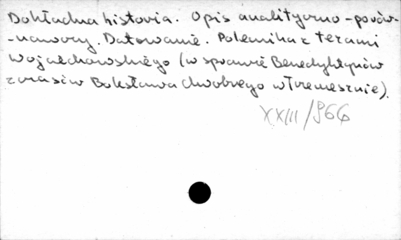 Dokładna historia. Opis analityczno-porów-
-nawczy. Datowanie. Polemika z tezami
Wojciechowskiego (w sprawie Benedyktynów
z czasów Bolesława Chrobrego w Trzemesznie).
XXIII/966